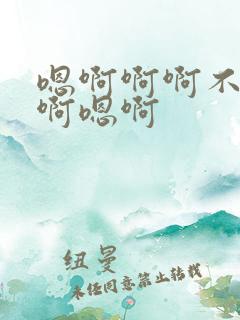 嗯啊啊啊不
啊嗯啊
纽曼
未经同意禁止转载